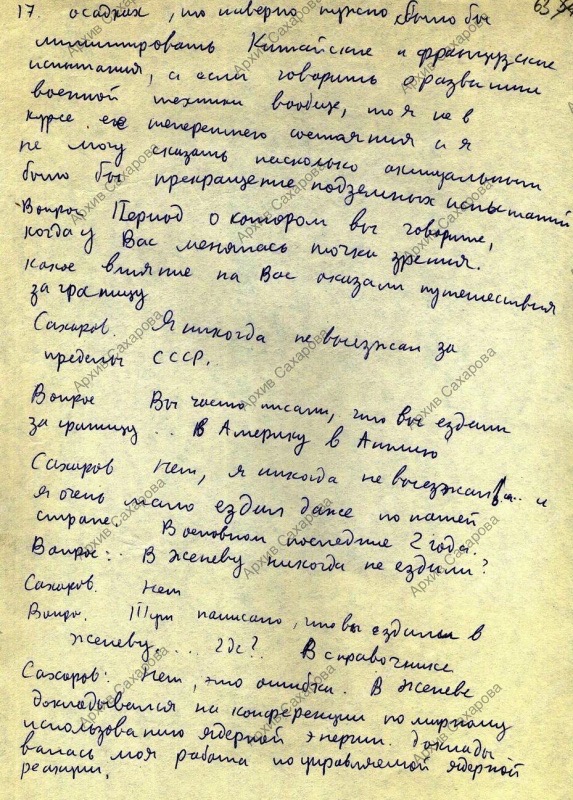 17. осадках, то наверно нужно было бы 63
лимитировать Китайские и французские
испытания, а если говорить о развитии
военной техники вообще, то я не в
курсе её теперешнего состояния и я
не могу сказать насколько актуальным
было бы прекращение подземных испытаний
Вопрос Период о котором вы говорите,
когда у Вас менялась точка зрения.
какое влияние на Вас оказали путешествия
за границу
Сахаров. Я никогда не выезжал за
пределы СССР.
Вопрос Вы часто писали, что вы ездили
за границу .. в Америку в Англию
Сахаров Нет, я никогда не выезжал и
я очень мало ездил даже по нашей
стране. В основном последние 2 года.
Вопрос: .. В Женеву никогда не ездили?
Сахаров. Нет
Вопрос. написано, что вы ездили в
Женеву.... где? . В справочнике
Сахаров: Нет, это ошибка. В Женеве
докладывался на конференции по мирному
использованию ядерной энергии. Доклады
валась моя работа по управляемой ядерной
реакции.
Архив Сахарова